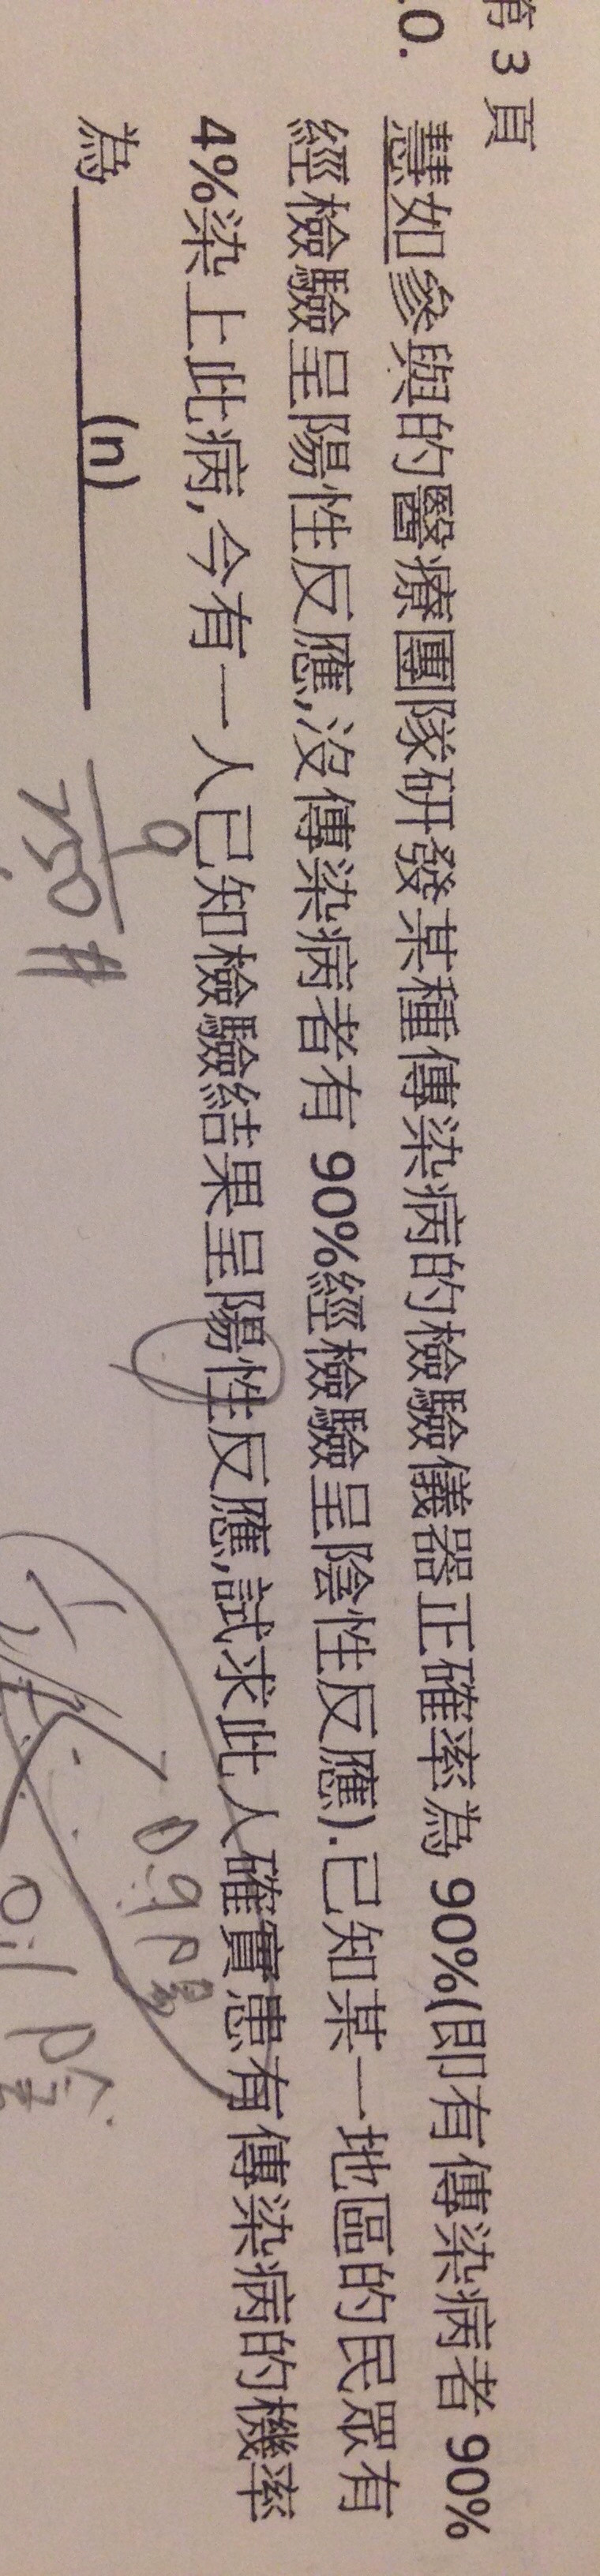 第 3 頁
.0. 慧如參與的醫療團隊研發某種傳染病的檢驗儀器正確率為 90%(即有傳染病者 90%
經檢驗呈陽性反應,沒傳染病者有 90%經檢驗呈陰性反應).已知某一地區的民眾有
4%染上此病,今有一人已知檢驗結果呈陽性反應,試求此人確實患有傳染病的機率
為 (n)
9
250 #
0.9 陽
0.1 陰